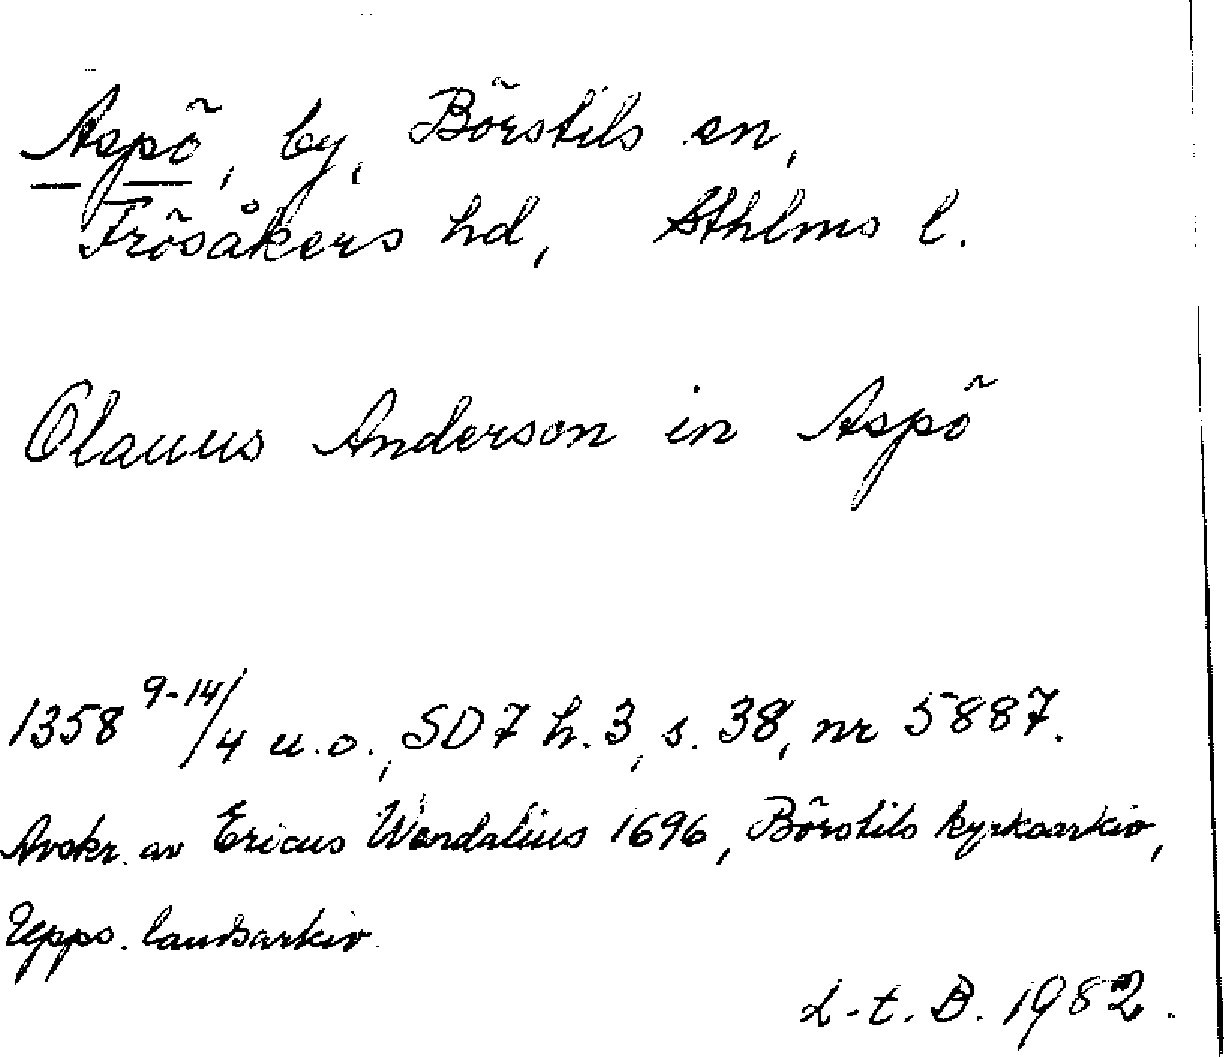 Aspö, by, Börstils sn,
Frösåkers hd, Sthlms l.
Olauus Anderson in Aspö
1358 9-14/4 u.o., SD 7 h. 3, s. 38, nr 5887.
Avskr. av Ericus Wandalius 1696, Börstils kyrkoarkiv,
Upps. landsarkiv.
L-t. B. 1982.